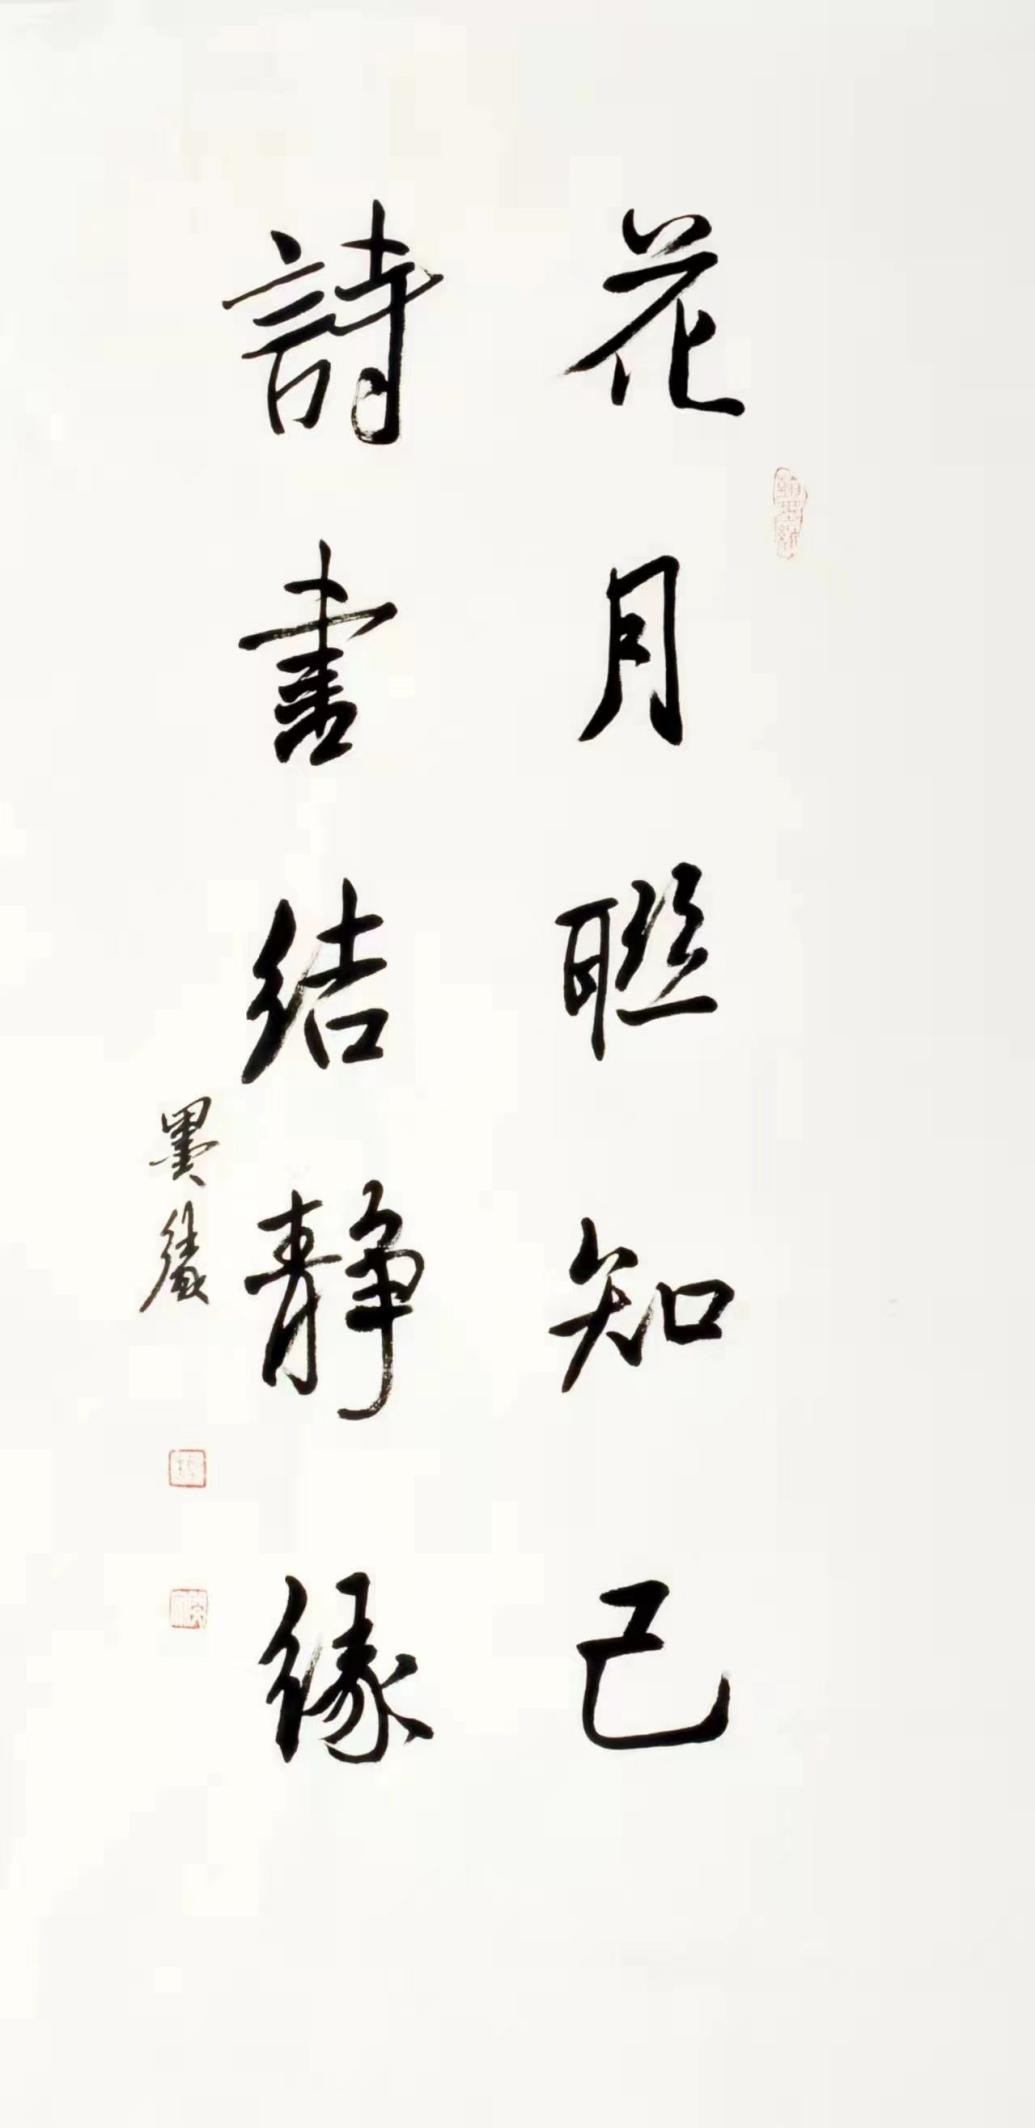 花月联知己
詩書结静缘
墨